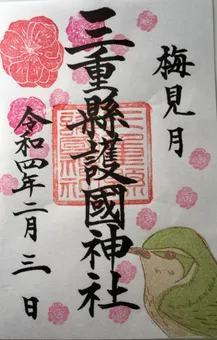 梅見月
三重縣護國神社
令和四年二月三日